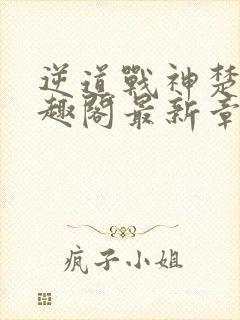 逆道戰神楚
趣閣最新章
疯子小姐